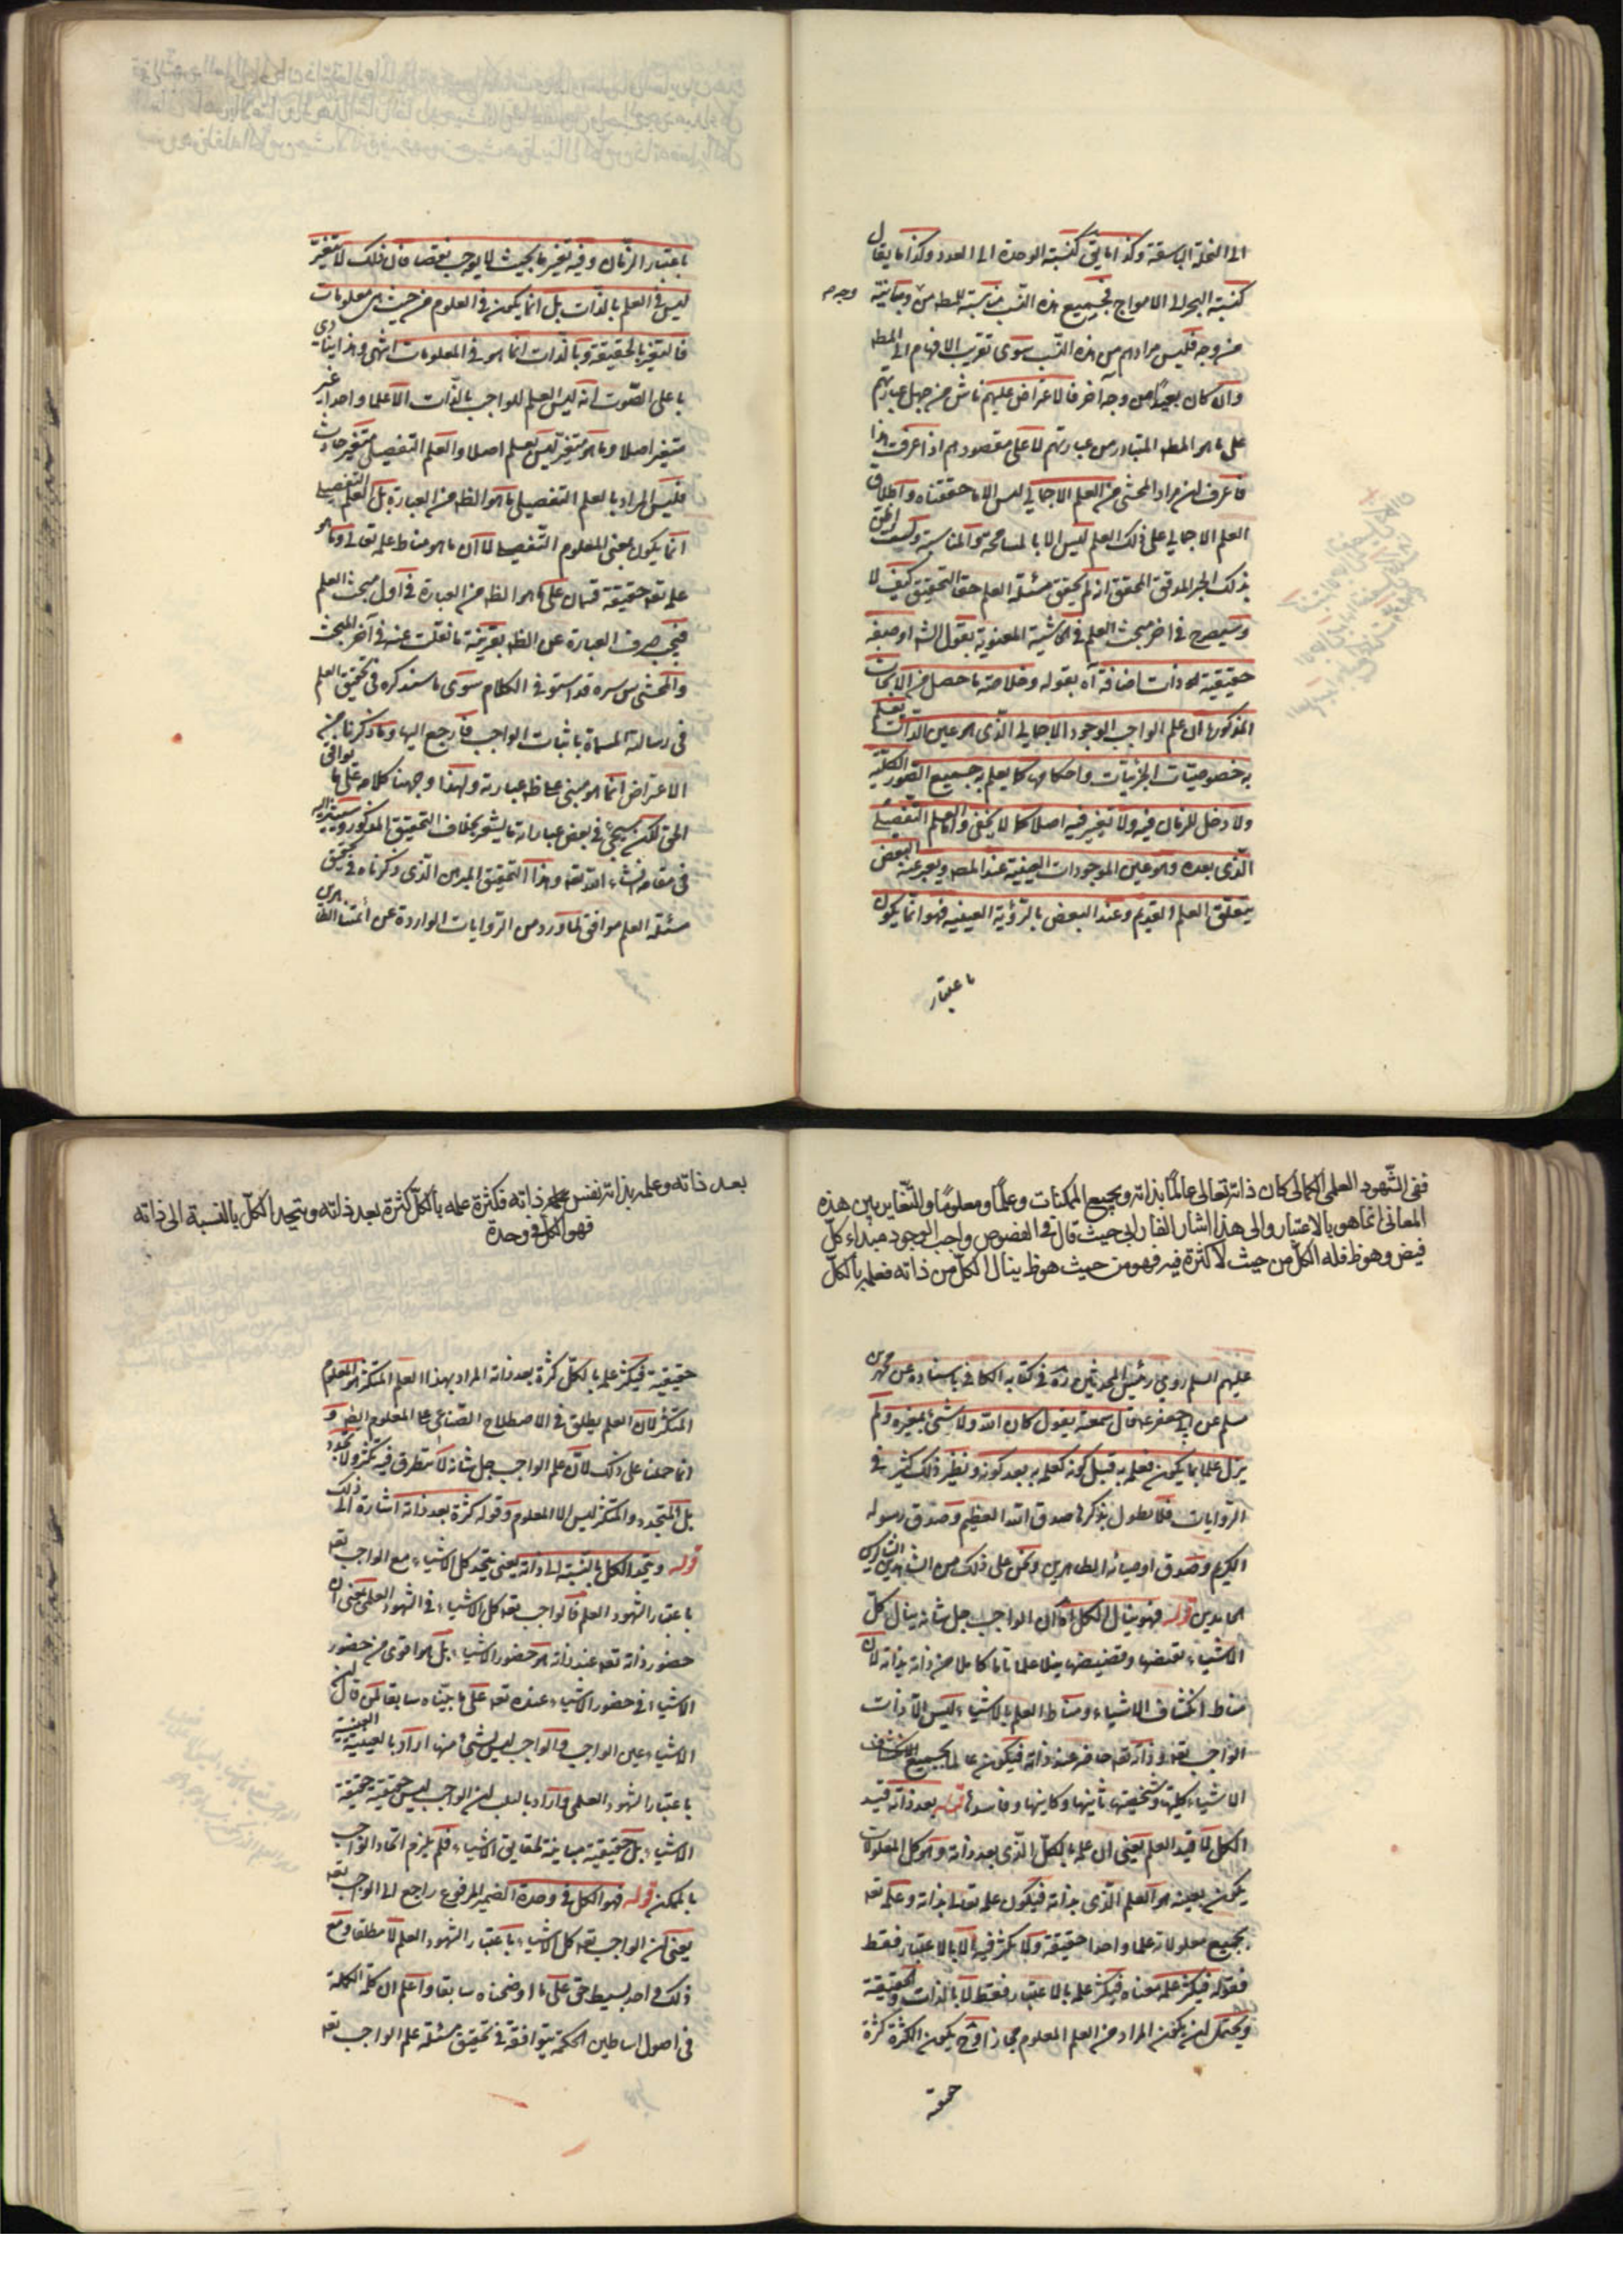 الى النخلة الباسقة وكذا ما يق كنسبة الوحدة الى العدد وكذا ما يقال
كنسبة البحر الى الامواج فجميع هذه النسب مناسبة للمط من وجه ومباينة
من وجه فليس مرادهم من هذه النسب سوى تقريب الافهام الى المط
وان كان بعيدا من وجه آخر فالاعتراض عليهم ناش من جهل عباراتهم
على ما هو المط المتبادر من عباراتهم لا على مقصودهم اذا عرفت هذا
فاعرف ان مراد المحشى من العلم الاجمالي ليس الا ما حققناه واطلاق
العلم الاجمالي على ذلك العلم ليس الا بالمسامحة والمناسبة وكيف لا يظن
بذلك الحبر المدقق المحقق انه لم يحقق مسئلة العلم حق التحقيق كيف لا
وسيصرح في اخر مبحث العلم في الحاشية المعنونة بقول الشه او صفة
حقيقية له ذات اضافة آه بقوله وخلاصة ما حصل من الابحاث
المذكورة ان علم الواجب الوجود الاجمالي الذى هو عين الذات يعلم
به خصوصيات الجزئيات واحكامها كما يعلم به جميع الصور الكلية
ولا دخل للزمان فيه ولا تغير فيه اصلا كما لا يخفى واما العلم التفصيلى
الذى بعده وهو عين الموجودات العينية عند المص ويعبر عنه البعض
بتعلق العلم القديم وعند البعض بالرؤية العينية فهو انما يكون
باعتبار
باعتبار الزمان وفيه تغير ما بحيث لا يوجب نقصا فان ذلك التغير
ليس في العلم بالذات بل انما يكون في العلوم من حيث هى معلومات
فالتغير بالحقيقة وبالذات انما هو في المعلومات انتهى وهذا ينادى
باعلى الصوت انه ليس العلم للواجب بالذات الا علما واحدا غير
متغير اصلا وما هو متغير ليس بعلم اصلا والعلم التفصيلى متغير حادث
فليس المراد بالعلم التفصيلى ما هو الظ من العبارة بل العلم التفصيلى
انما يكون بمعنى المعلوم التفصيلى لما ان ما هو مناط علمه تعالى وما هو
علمه تعه حقيقة قسمان على ما هو الظ من العبارة في اول مبحث العلم
فيجب صرف العبارة عن الظ بقرينة ما نقلت عنه في آخر المبحث
والمحشى س سره قد استوفى الكلام سوى ما سنذكره في تحقيق العلم
في رسالة المسماة باثبات الواجب فارجع اليها وما ذكرنا من
الاعتراض انما هو مبنى على ظ عبارته ولهذا وجهنا كلامه على ما يوافق
الحق لكن سيجئ في بعض عباراته ما يشعر بخلاف التحقيق المذكور وسنشير اليه
في مقامه انشاء الله تعه وهذا التحقيق المبرهن الذى ذكرناه في تحقيق
مسئلة العلم موافق لما ورد من الروايات الواردة عن ائمتنا
ففى الشهود العلمى الكمالى كان ذاته تعالى عالما بذاته وبجميع الممكنات وعلما ومعلوما والتغاير بين هذه
المعانى انما هو بالاعتبار والى هذا اشار الفارابى حيث قال في الفصوص واجب الوجود مبداء كل
فيض وهو ظ فله الكل من حيث لا كثرة فيه فهو من حيث هو ظ ينال الكل من ذاته فعلمه بالكل
عليهم السلم روى رئيس المحدثين ره في كتابه الكافى باسناده عن محمد بن
مسلم عن ابى جعفر ع قال سمعته يقول كان الله ولا شئ غيره ولم
يزل عالما بما يكون فعلمه به قبل كونه كعلمه به بعد كونه ونظير ذلك كثير في
الروايات فلا نطول بذكرها صدق الله العظيم وصدق رسوله
الكريم وصدق اوصيائه الطاهرين ونحن على ذلك من الشاهدين الشاكرين
الحامدين قوله فهو ينال الكل آه ان الواجب جل شانه ينال كل
الاشياء نيلا علما تاما كاملا من ذاته بذاته لان
مناط انكشاف الاشياء ومناط العلم بالاشياء ليس الا ذات
الواجب تعه وذاته تعه حاضر عند ذاته فيكون عالما بجميع الاشياء
الاشياء كليتها وشخصيتها ثابتها وكاينها وفاسدها قوله بعد ذاته قيد
الكل لا قيد العلم يعنى ان علمه بالكل الذى بعد ذاته وهو كل المعلولات
يكون بعينه هو العلم الذى بذاته فيكون علمه تعالى بذاته وعلمه تعه
بجميع معلولاته علما واحدا حقيقة ولا تكثر فيه الا بالاعتبار فقط
فقوله فيكثر علمه معناه فيكثر علمه بالاعتبار فقط لا بالذات والحقيقة
ويحتمل ان يكون المراد من العلم المعلوم مجازا وح يكون الكثرة كثرة
حقيقية
بعد ذاته وعلمه بذاته نفس ذاته فكثرة علمه بالكل كثرة بعد ذاته ويتحد الكل بالنسبة الى ذاته
فهو الكل في وحدة
حقيقية فيكثر علمه بالكل كثرة بعد ذاته المراد بهذا العلم المتكثر هو المعلوم
المتكثر لان العلم يطلق في الاصطلاح الصناعى على المعلوم ايضا و
انما حملنا على ذلك لان علم الواجب جل شانه لا يتطرق فيه تكثر ولا تجدد
بل المتجدد والمتكثر ليس الا المعلوم وقوله كثرة بعد ذاته اشارة الى ذلك
قوله ويتحد الكل بالنسبة الى ذاته يعنى يتحد كل الاشياء مع الواجب تعه
باعتبار الشهود العلم فالواجب تعه كل الاشياء في الشهود العلمى بمعنى ان
حضور ذاته تعه عند ذاته هو حضور الاشياء بل هو اقوى من حضور
الاشياء في حضور الاشياء عنده تعه على ما بيناه سابقا فمن قال ان
الاشياء عين الواجب والواجب ليس بشئ منها اراد بالعينية العينية
باعتبار الشهود العلمى واراد بالسلب ان الواجب ليس حقيقة حقيقة
الاشياء بل حقيقته مباينة لحقايق الاشياء فلم يلزم اتحاد الواجب
بالممكن قوله فهو الكل في وحدة الضمير المرفوع راجع الى الواجب تعه
يعنى ان الواجب تعه كل الاشياء باعتبار الشهود العلم لا مطلقا ومع
ذلك واحد بسيط حق على ما اوضحناه سابقا واعلم ان كلمة
في اصول اساطين الحكمة متوافقة في تحقيق مسئلة علم الواجب تعه